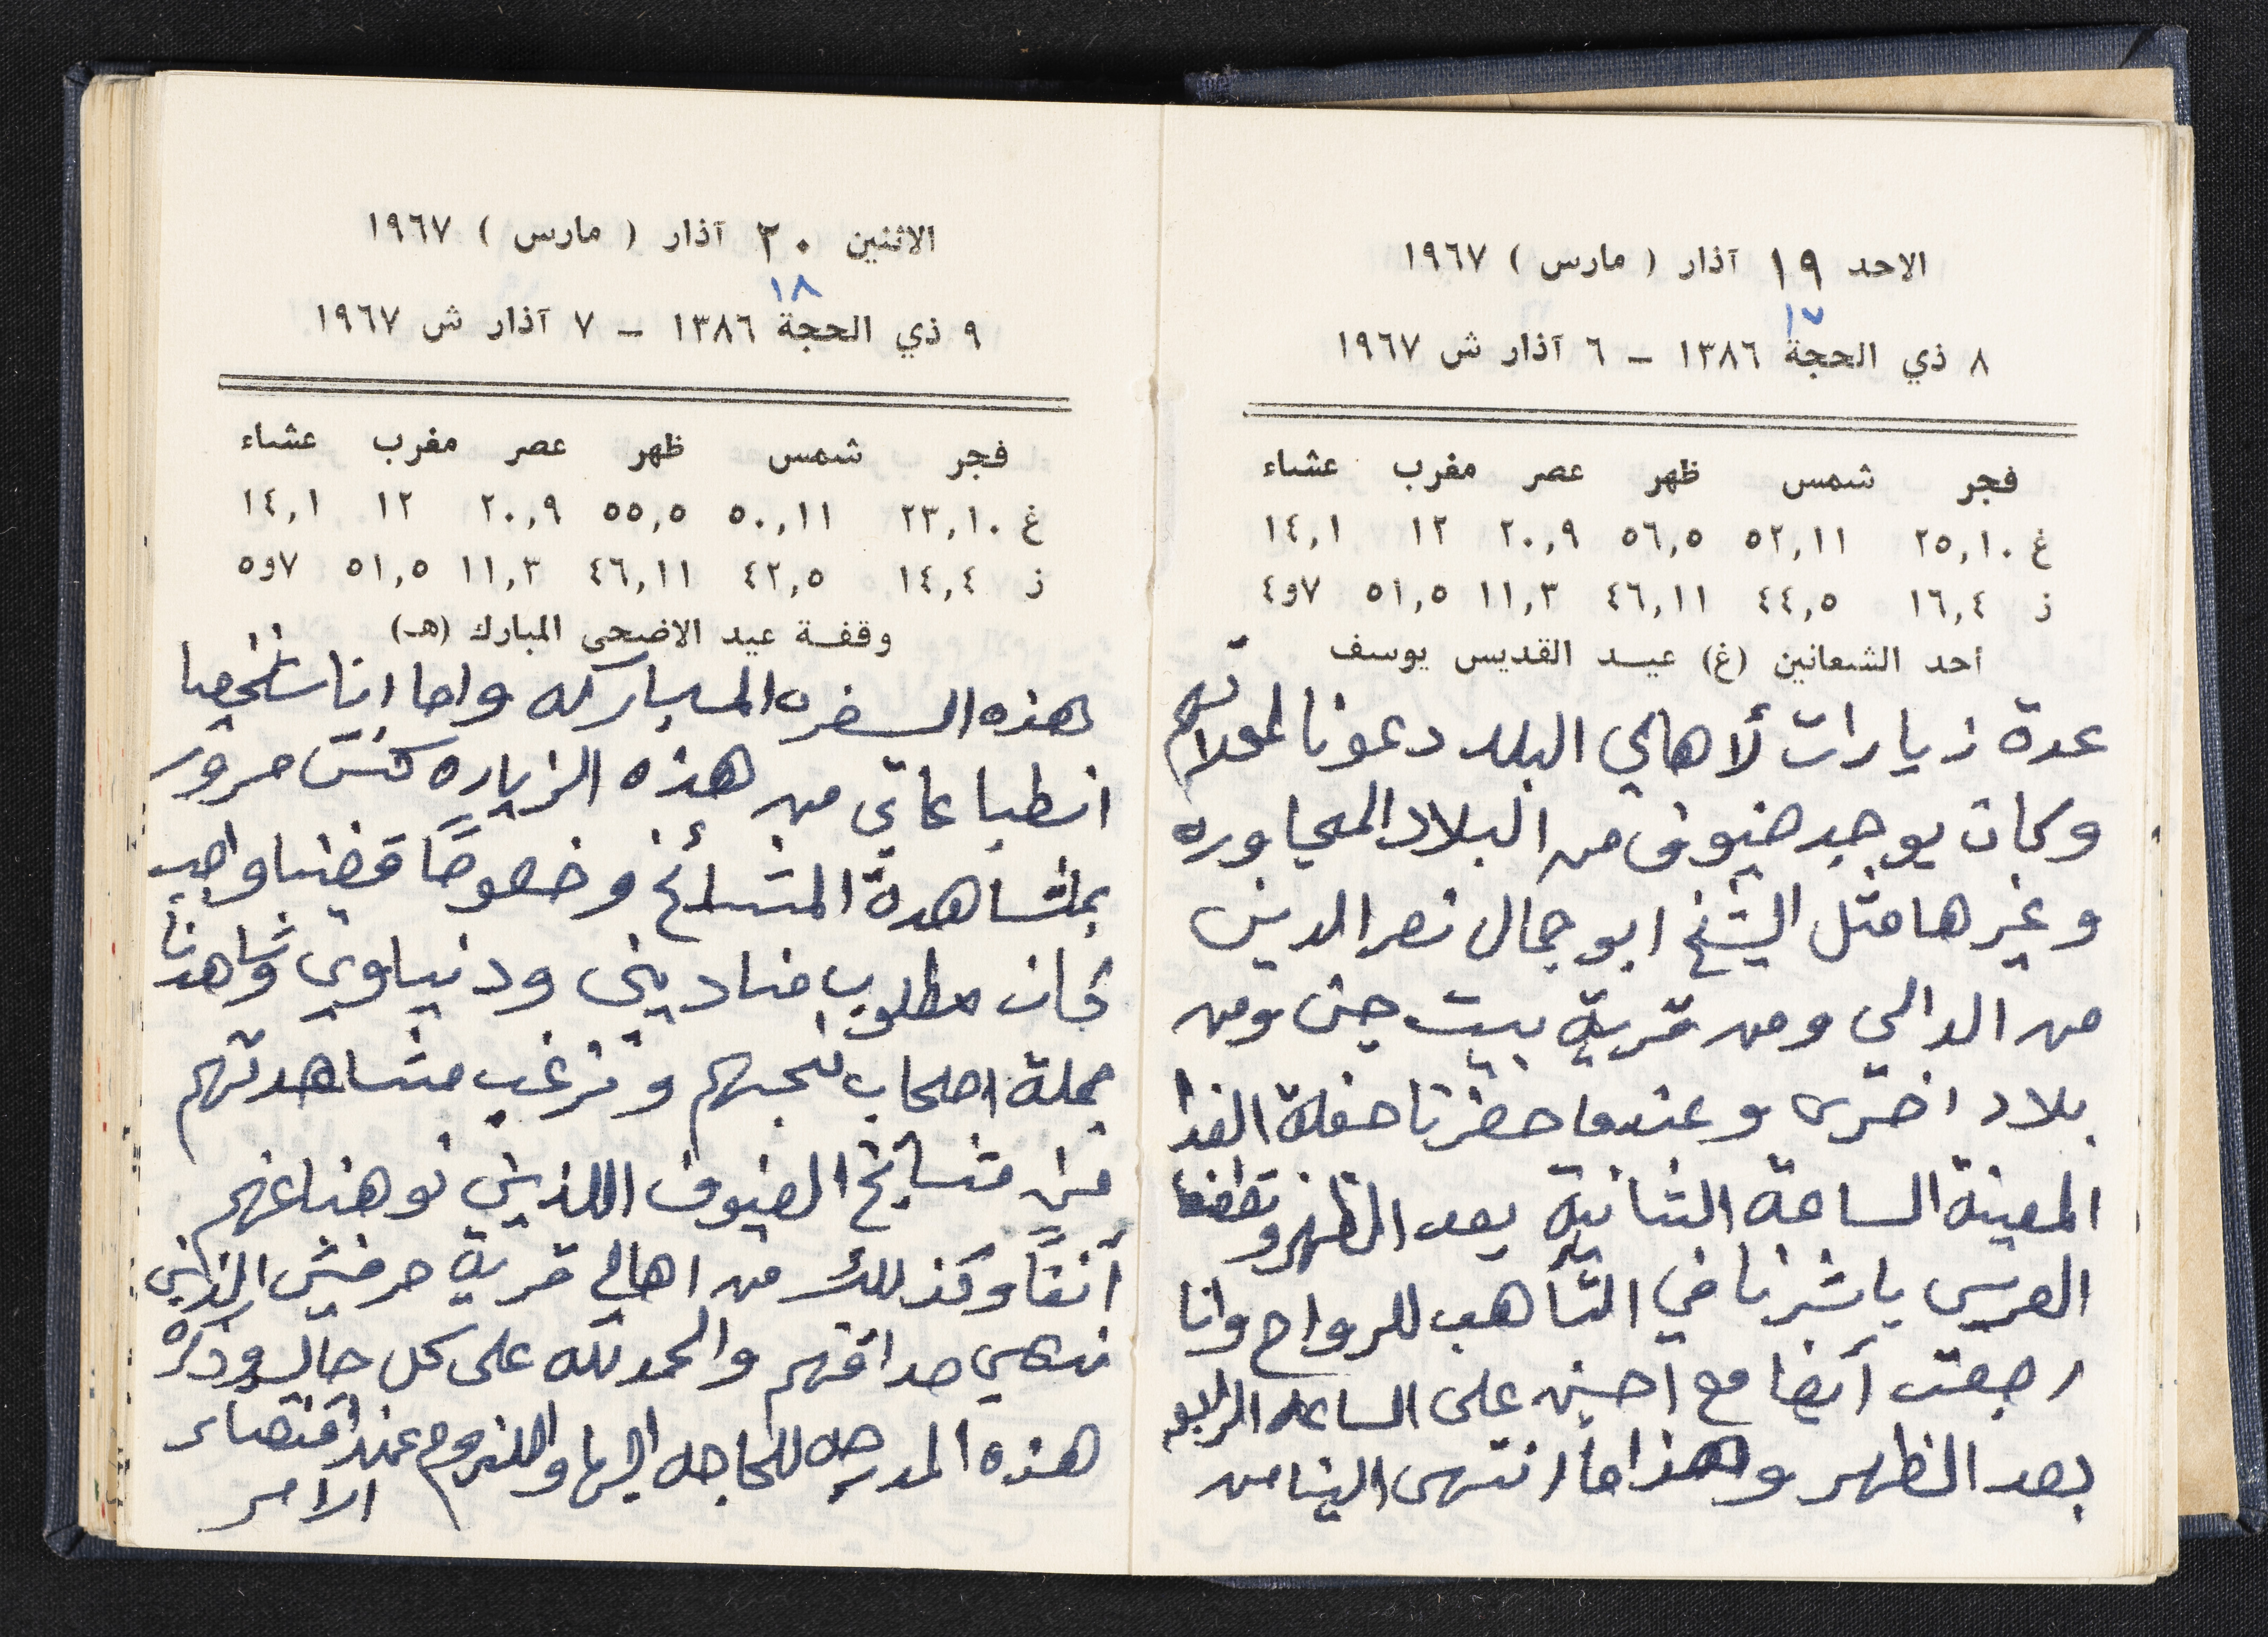 الاحد ١٩ آذار ( مارس ) ١٩٦٧
١٧
٨ ذي الحجة ١٣٨٦ – ٦ آذار ش ١٩٦٧
فجر شمس ظهر عصر مغرب عشاء
غ ٢٥,١٠ ٥٢,١١ ٥٦,٥ ٢٠,٩ ١٢ ١٤,١
ز ١٦,٤ ٤٤,٥ ٤٦,١١ ١١,٣ ٥١,٥ ٧و٤
احد الشعانين (غ) عيد القديس يوسف
عدة زيارات لأهالي البلد دعونا لمحلاتهم
وكان يوجد ضيوف من البلاد المجاوره
وغيرها مثل الشيخ ابو جمال نصر الدين
من الدالي ومن قرية بيت جن ومن
بلاد اخرى وعندما حضرنا حفلة الغدا
المعينة الساعة الثانية بعد الظهر
العرس باشرنا في التأهب للرواح وانا
رجعت أيضا مع احسن على الساعه الرابعه
بعد الظهر وهذا ما انتهى الينا من
الاثنين ٢٠ آذار ( مارس ) ١٩٦٧
١٨
٩ ذي الحجة ١٣٨٦ – ٧ آذار ش ١٩٦٧
فجر شمس ظهر عصر مغرب عشاء
غ ٢٣,١٠ ٥٠,١١ ٥٥,٥ ٢٠,٩ ١٢ ١٤,١
ز ١٤,٤ ٤٢,٥ ٤٦,١١ ١١,٣ ٥١,٥ ٧و٥
وقفة عيد الاضحى المبارك (هـ)
هذه السفره المباركه واما انا شخصيا
انطباعاتي من هذه الزياره كنت مسرور
بمشاهدة المشائخ وخصوصًا قضينا واجب
كان مطلوب منا ديني ودنياوي وشاهدنا
جملة اصحاب نحبهم ونرغب مشاهدتهم
من مشايخ الضيوف اللذين نوهنا عنهم
آنفًا وكذلك من اهالي قرية حرفيش الذين
صداقتهم والحمد لله على كل حال وذكرة
هذه المدرجه للحاجه اليها واللزوم عند اقتضاء
الامر